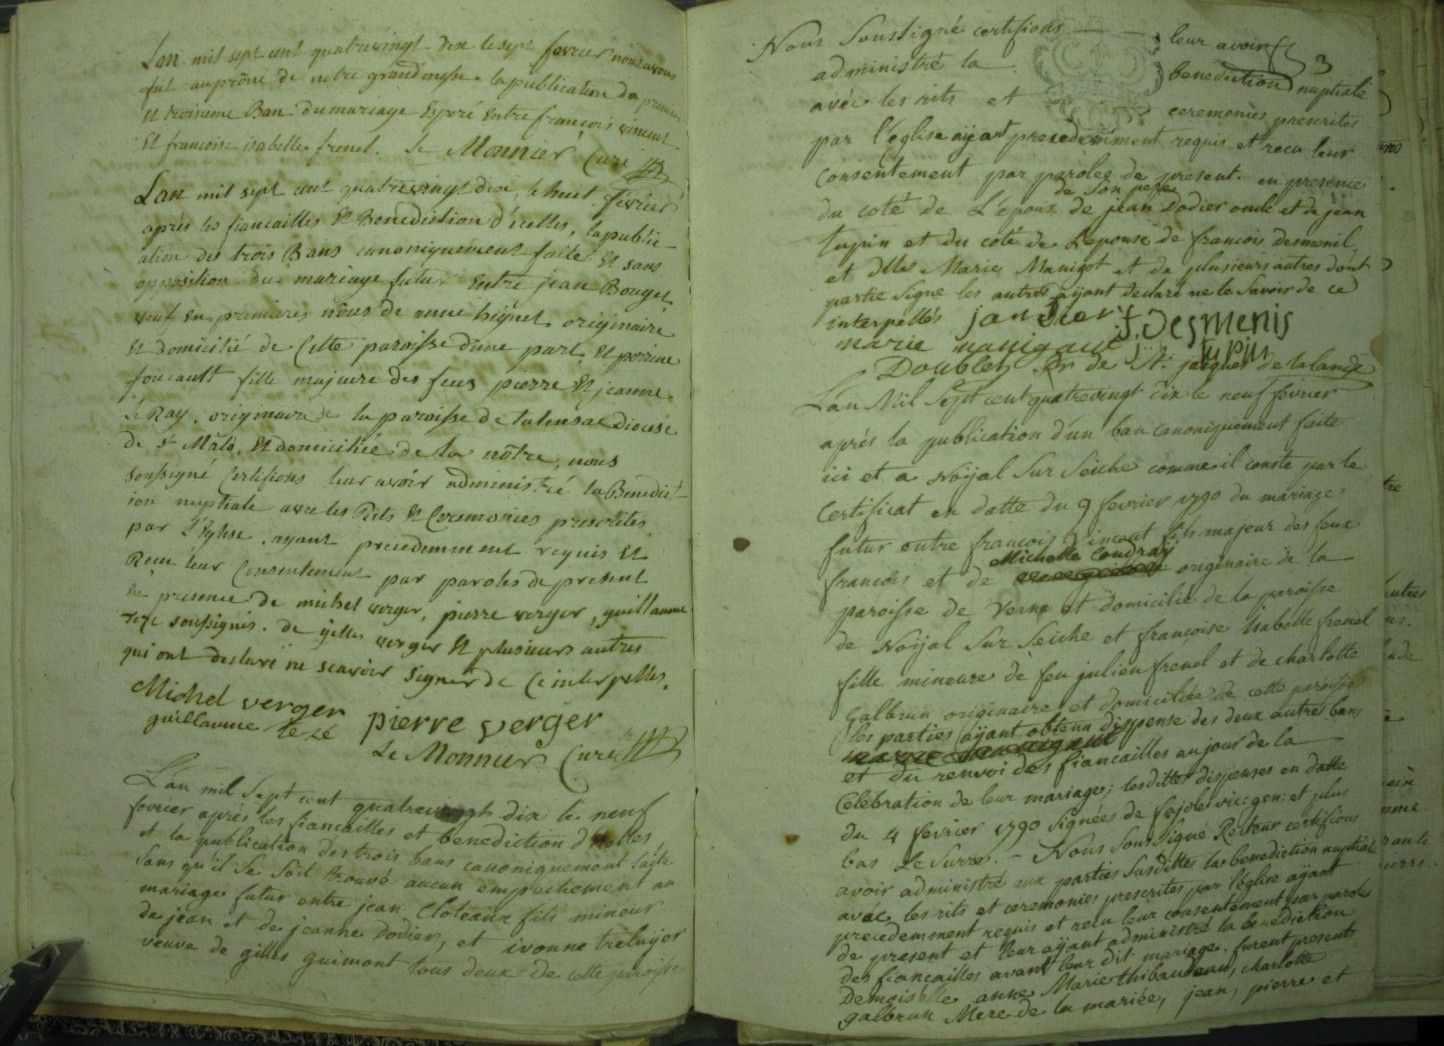 Lan mil sept cent quatrevingt dix le sept fevrier nous avons
fait au prône de notre grandmesse la publication du premier
et troisieme Ban du mariage Esperé Entre françois vincent
Et francoise isabelle frenel. Le Monnier Curé
Lan mil sept cent quatrevingt dix, le huit fevrier
après les fiancailles Et Benediction d'icelles, la public-
ation des trois Bans canoniquement faite Et sans
opposition du mariage futur Entre jean Bouget
veuf en premieres nôces de anne hignet originaire
Et domicilié de Cette paroisse d'une part, Et perrine
foucault fille majeure des feus pierre Et jeanne
le Ray, originaire de la paroisse de talensac diocese
de st Malo, Et domiciliée de la nôtre, nous
soussigné Certifions leur avoir administré la Benedict-
ion nuptiale avec les Rits Et Ceremonies prescrites
par l'Eglise, ayant precedemment requis Et
Recu leur Consentement par paroles de present
En presence de michel verger, pierre verger, guillaume
teze soussignés. de gilles verger Et plusieurs autres
qui ont declaré ne scavoir signer de Ce interpellés.
Michel verger pierre verger
guillaume tezé
Le Monnier Curé
L'an mil sept cent quatrevingt dix le neuf
fevrier après les fiancailles et benediction d'icelles
et la publication des trois bans canoniquement faite
sans qu'il se soit trouvé aucun empechement au
mariage futur entre jean Cloteaux fils mineur
de jean et de jeanne Dodier, et ivonne treluyer
veuve de gilles guimont tous deux de cette paroisse
3
Nous Soussigné certifions leur avoir
administré la benediction nuptiale
avec les rits et ceremonies prescrites
par l'église ayant precedemment requis et recu leur
consentement par paroles de present. en presence
de son pere
du coté de L'epoux de jean dodier oncle et de jean
lupin et du coté de L'epouse de francois desmenil,
et Dlle Marie Manigot et de plusieurs autres dont
partie signe les autres ayant declaré ne le savoir de ce
interpellés F. Desmenis
marie manigaut j: lupin
Doublet Pr de St. jacques de la lande
L'an Mil Sept cent quatrevingt dix le neuf fevrier
après la publication d'un ban canoniquement faite
ici et a Noyal Sur Seiche comme il conste par le
Certificat en datte du 9 fevrier 1790 du mariage
futur entre francois Vincent fils majeur des feux
Michelle Coudray
francois et de originaire de la
paroisse de Vern et domicilié de la paroisse
de Noyal Sur Seiche et françoise Isabelle frenel
fille mineure de feu julien frenel et de charlotte
Galbrun originaire et domiciliée de cette paroisse
les parties ayant obtenu dispense des deux autres bans
et du renvoi des fiancailles au jour de la
Celebration de leur mariage; lesdittes dispenses en datte
du 4 fevrier 1790 Signées de fajole vic: gen: et plus
bas Le Surre. - Nous Soussigné Recteur certifions
avoir administré aux parties Susdittes la benediction nuptiale
avec les rits et ceremonies prescrites par l'église ayant
precedemment requis et recu leur consentement par paroles
de present et leur ayant administré la benediction
des fiancailles avant leur dit mariage. furent presents
Demoiselle anne Marie thibaudeau, charlotte
galbrun Mere de la mariée, jean, pierre et